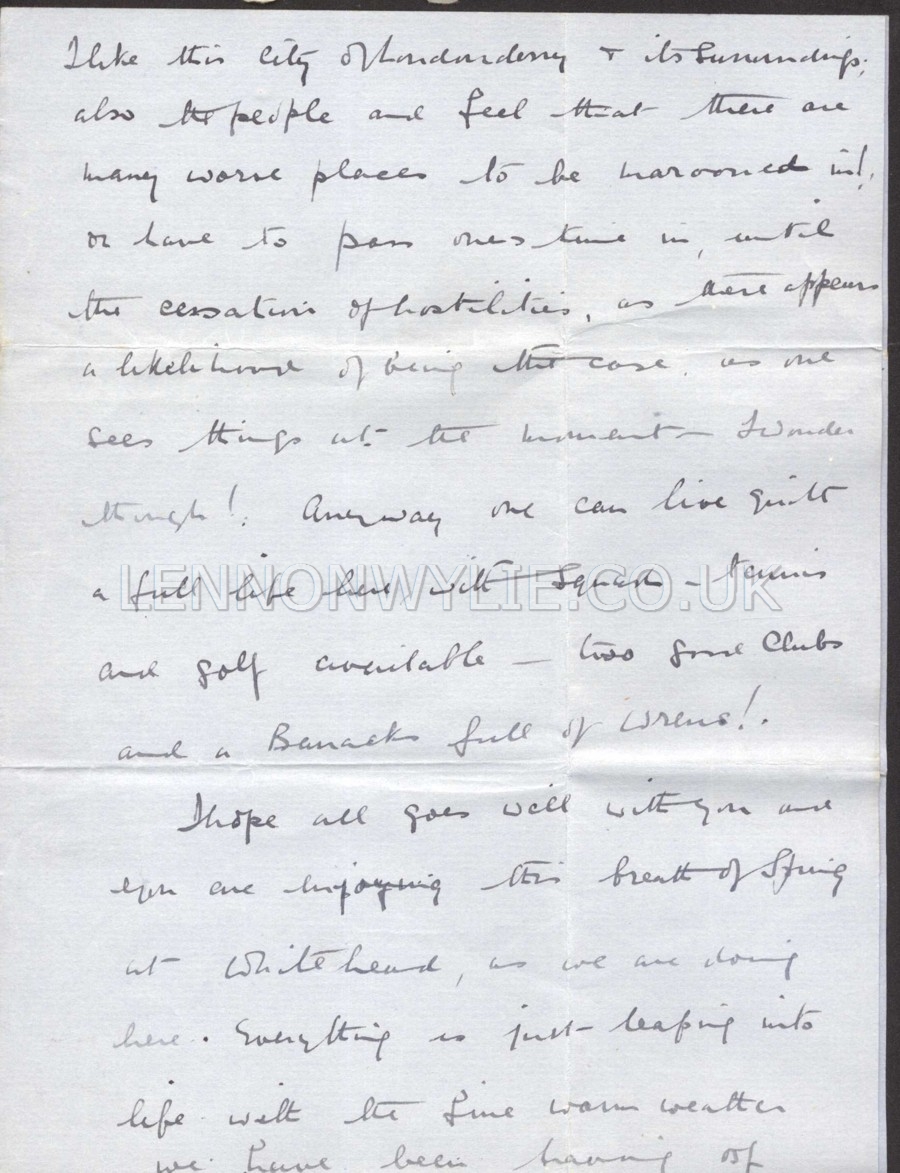 I like this City of Londonderry & its surroundings;
also the people and feel that there are
many worse places to be marooned in!,
or have to pass ones time in, until
the cessation of hostilities, as there appears
a likelihood of being the case, as one
sees things at the moment — I wonder
though!. Anyway one can live quite
a full life here with Squash – tennis
LENNONWYLIE.CO.UK
and golf available — two good Clubs
and a Barracks full of Wrens!.
I hope all goes well with you and
you are enjoying this breath of Spring
at Whitehead, as we are doing
here. Everything is just leaping into
life with the fine warm weather
we have been having of